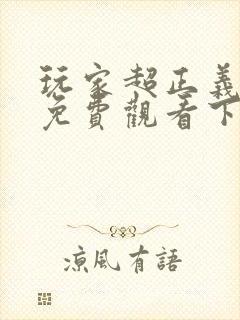 玩家超正義
免費觀看下
涼風有語